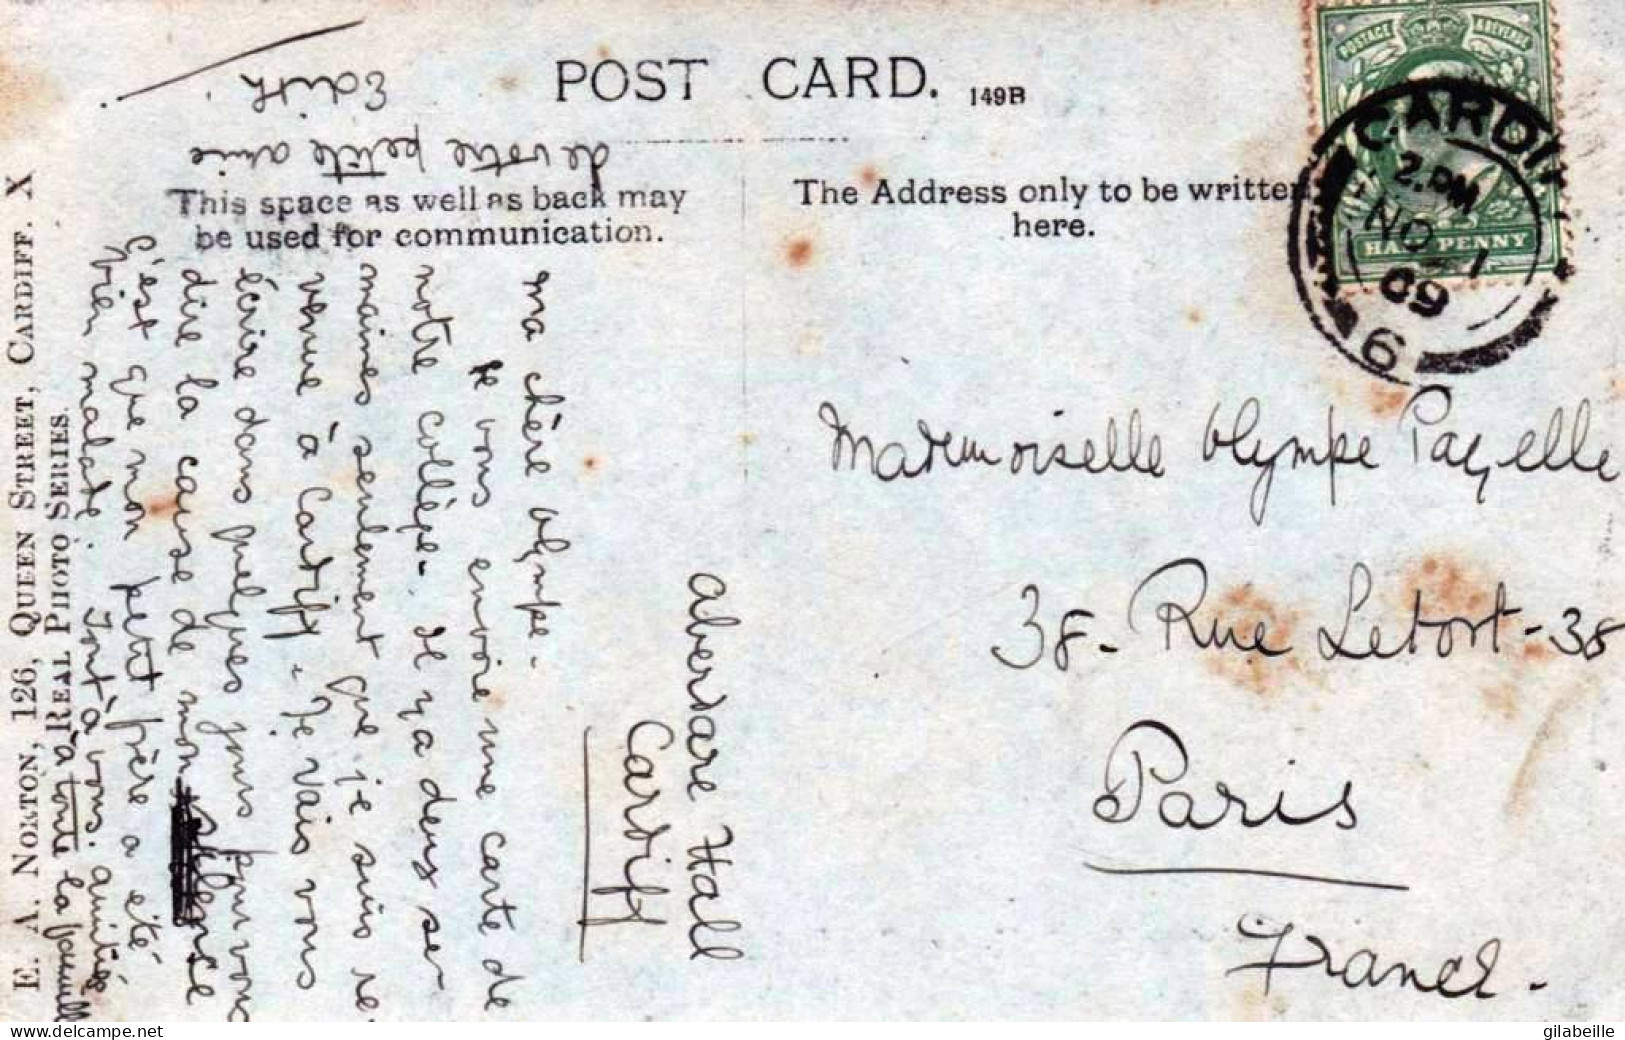 POST CARD.
149B
This space as well as back may
be used for communication.
The Address only to be written
here.
POSTAGE & REVENUE
HALF PENNY
CARDIFF
2.PM
NO 1
09
6
E. A. NORTON, 126, QUEEN STREET, CARDIFF. X
REAL PHOTO SERIES.
Aberdare Hall
Cardiff
Ma chère Olympe.
Je vous envoie une carte de
notre collège. Il y a deux se-
maines seulement que je suis re-
venue à Cardiff. Je vais vous
écrire dans quelques jours pour vous
dire la cause de mon silence
C'est que mon petit frère a été
bien malade. Tout à vous amitiés
à toute la famille
de votre petite amie
Edith
Mademoiselle Olympe Payelle
38. Rue Letort - 38
Paris
France.
gilabeille
www.delcampe.net